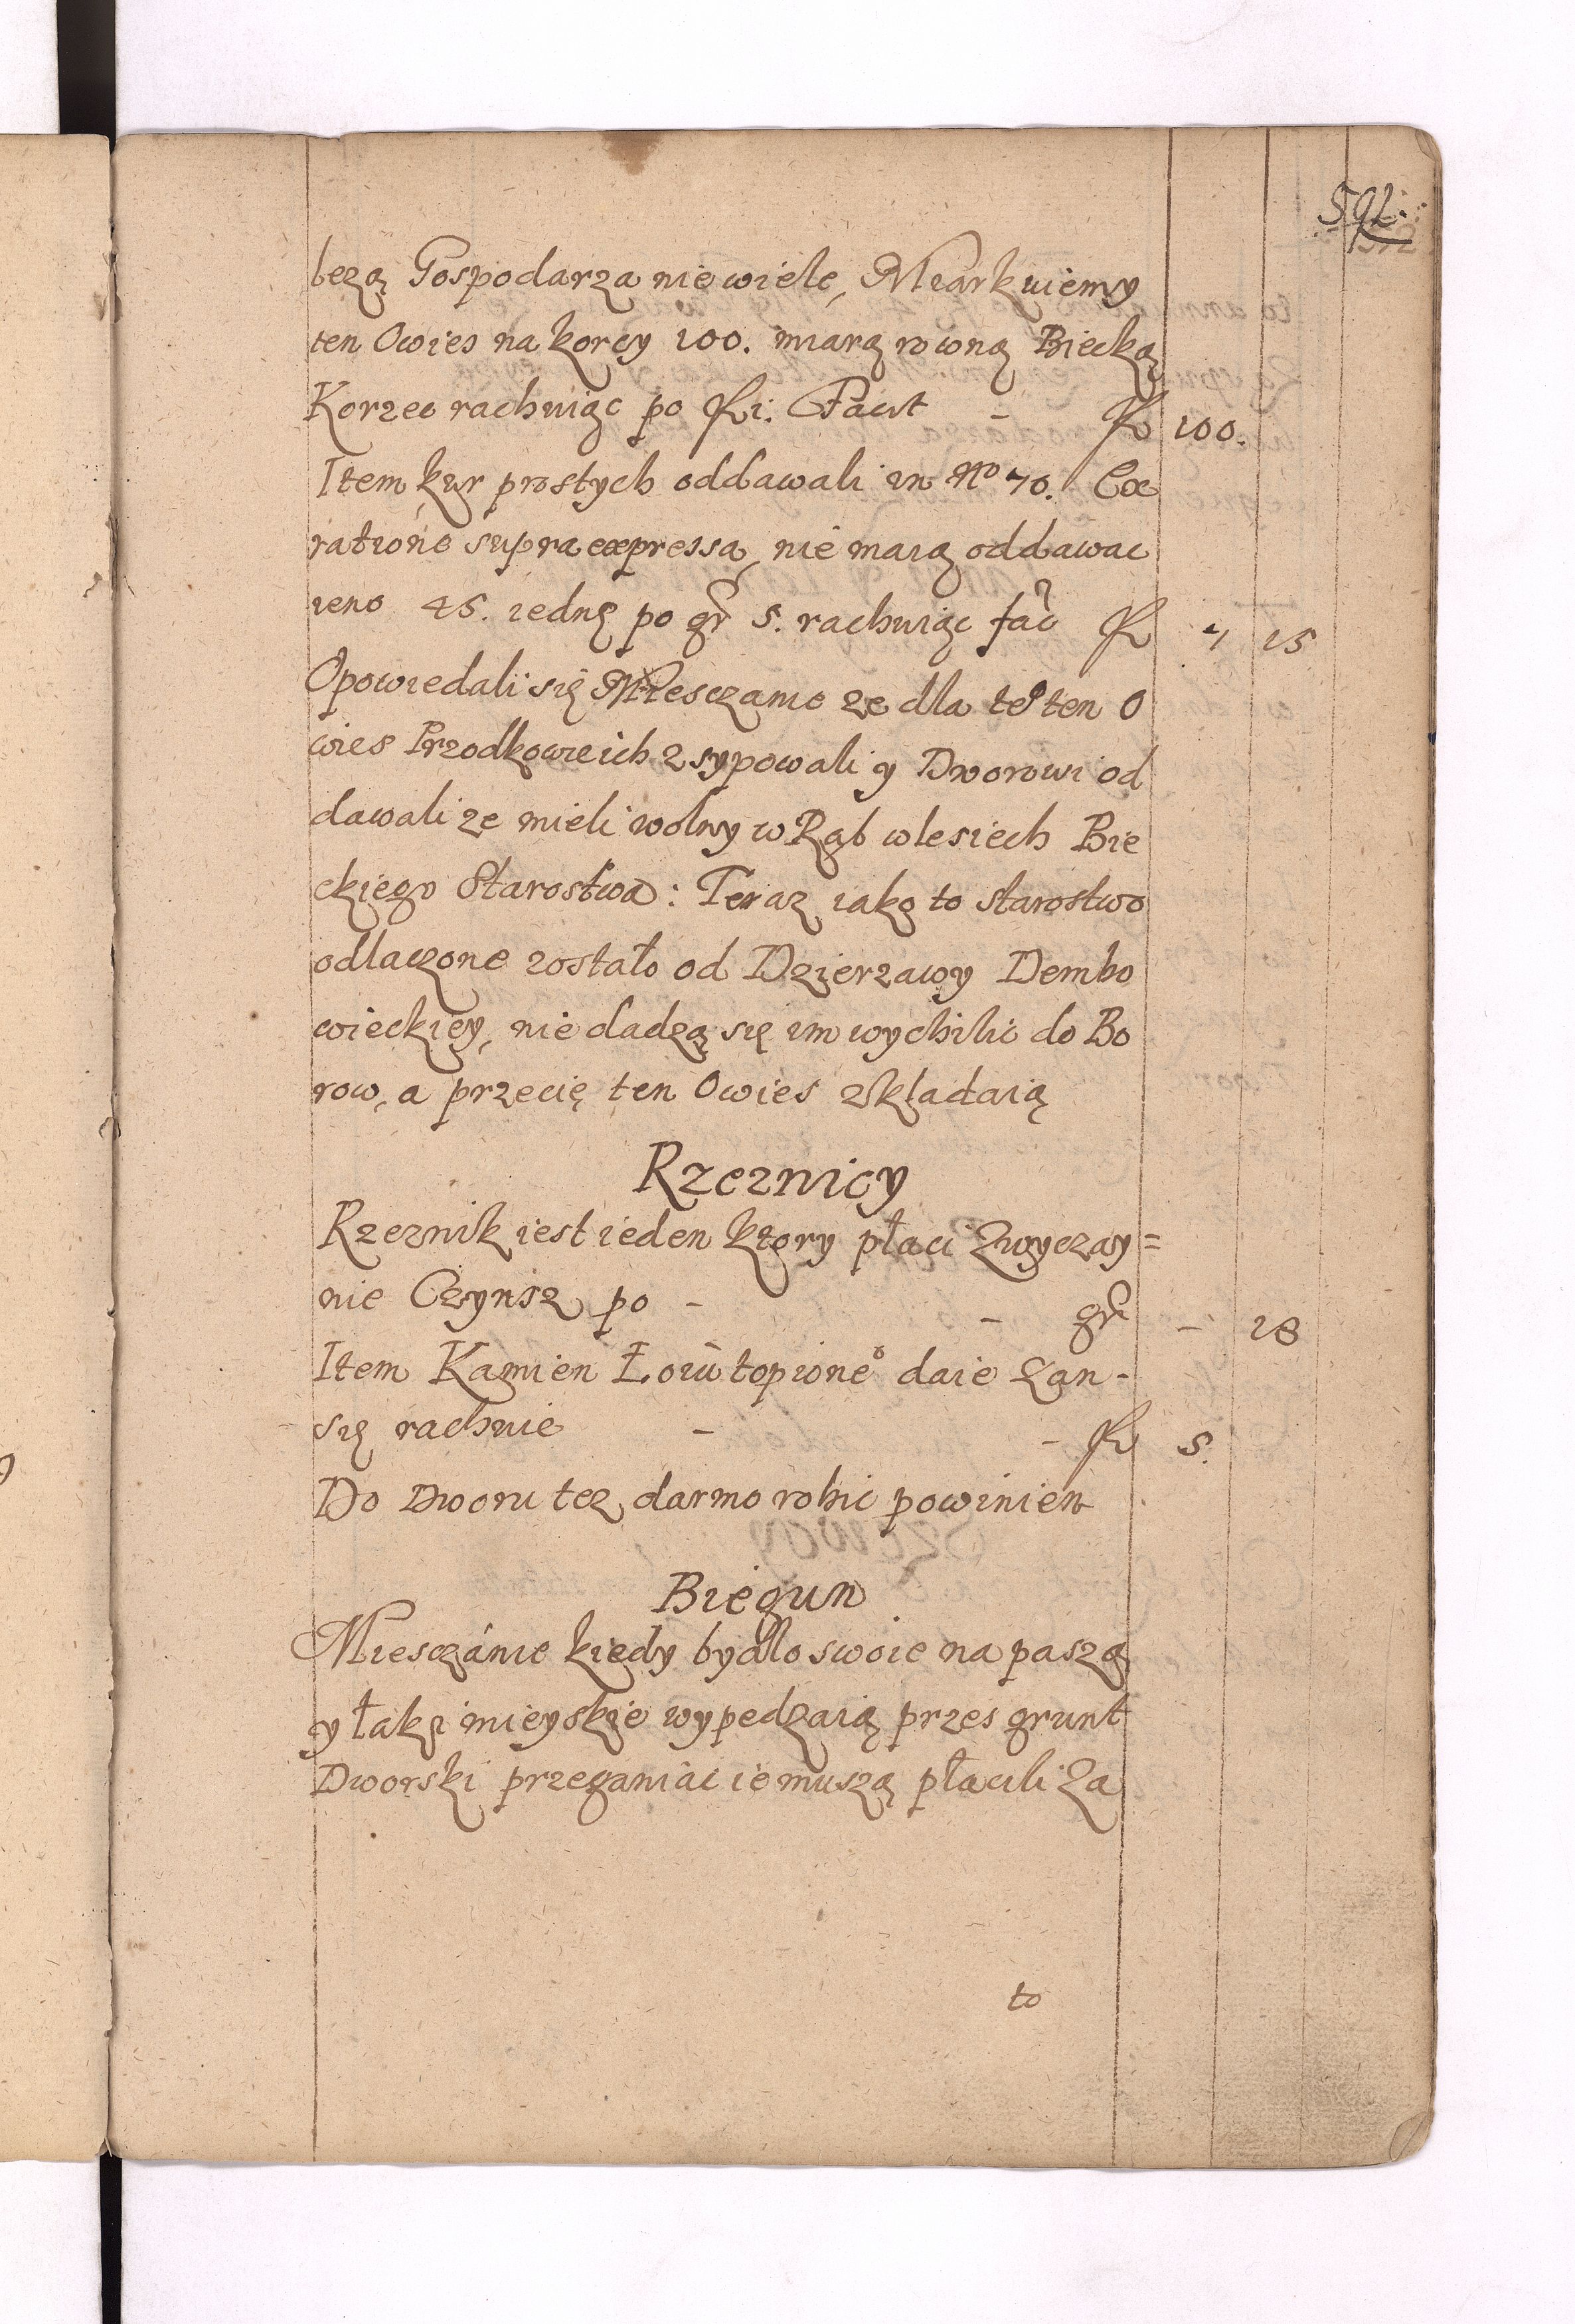 592.
bezą Gospodarza niewiele, Miarkuiemy
ten Owies na korcy 100. miarą rowną Biecką
Korzec rachuiąc po fl 1. Facit - fl 100.
Item kur prostych oddawali in No 70. Ex
ratione supra expressa, nie maią oddawac
ieno 45. iednę po gr 5. rachuiąc fac fl 7 15
Opowiedali się Miesczanie ze dla te° ten O
wies Przodkowie ich zsypowali y Dworowi od
dawali ze mieli wolny wRąb wlesiech Bie
ckiego Starostwa: Teraz iako to starostwo
odlaczone zostało od Dzierzawy Dembo
wieckiey, nie dadzą się im wychilic do Bo
row, a przecię ten Owies zskładaią
Rzeznicy
Rzeznik iest ieden ktory płaci Zwyczay=
nie Czynsz po - - gr - 18
Item Kamien Łoiu topione° daie Zan-
się rachuie - - fl 5.
Do Dworu tez darmo robic powinien
Biegun
Miesczánie kiedy bydło swoie na paszą
y łąki mieyskie wypedzaią przes grunt
Dworski przeganiac ie muszą płacili Za
to